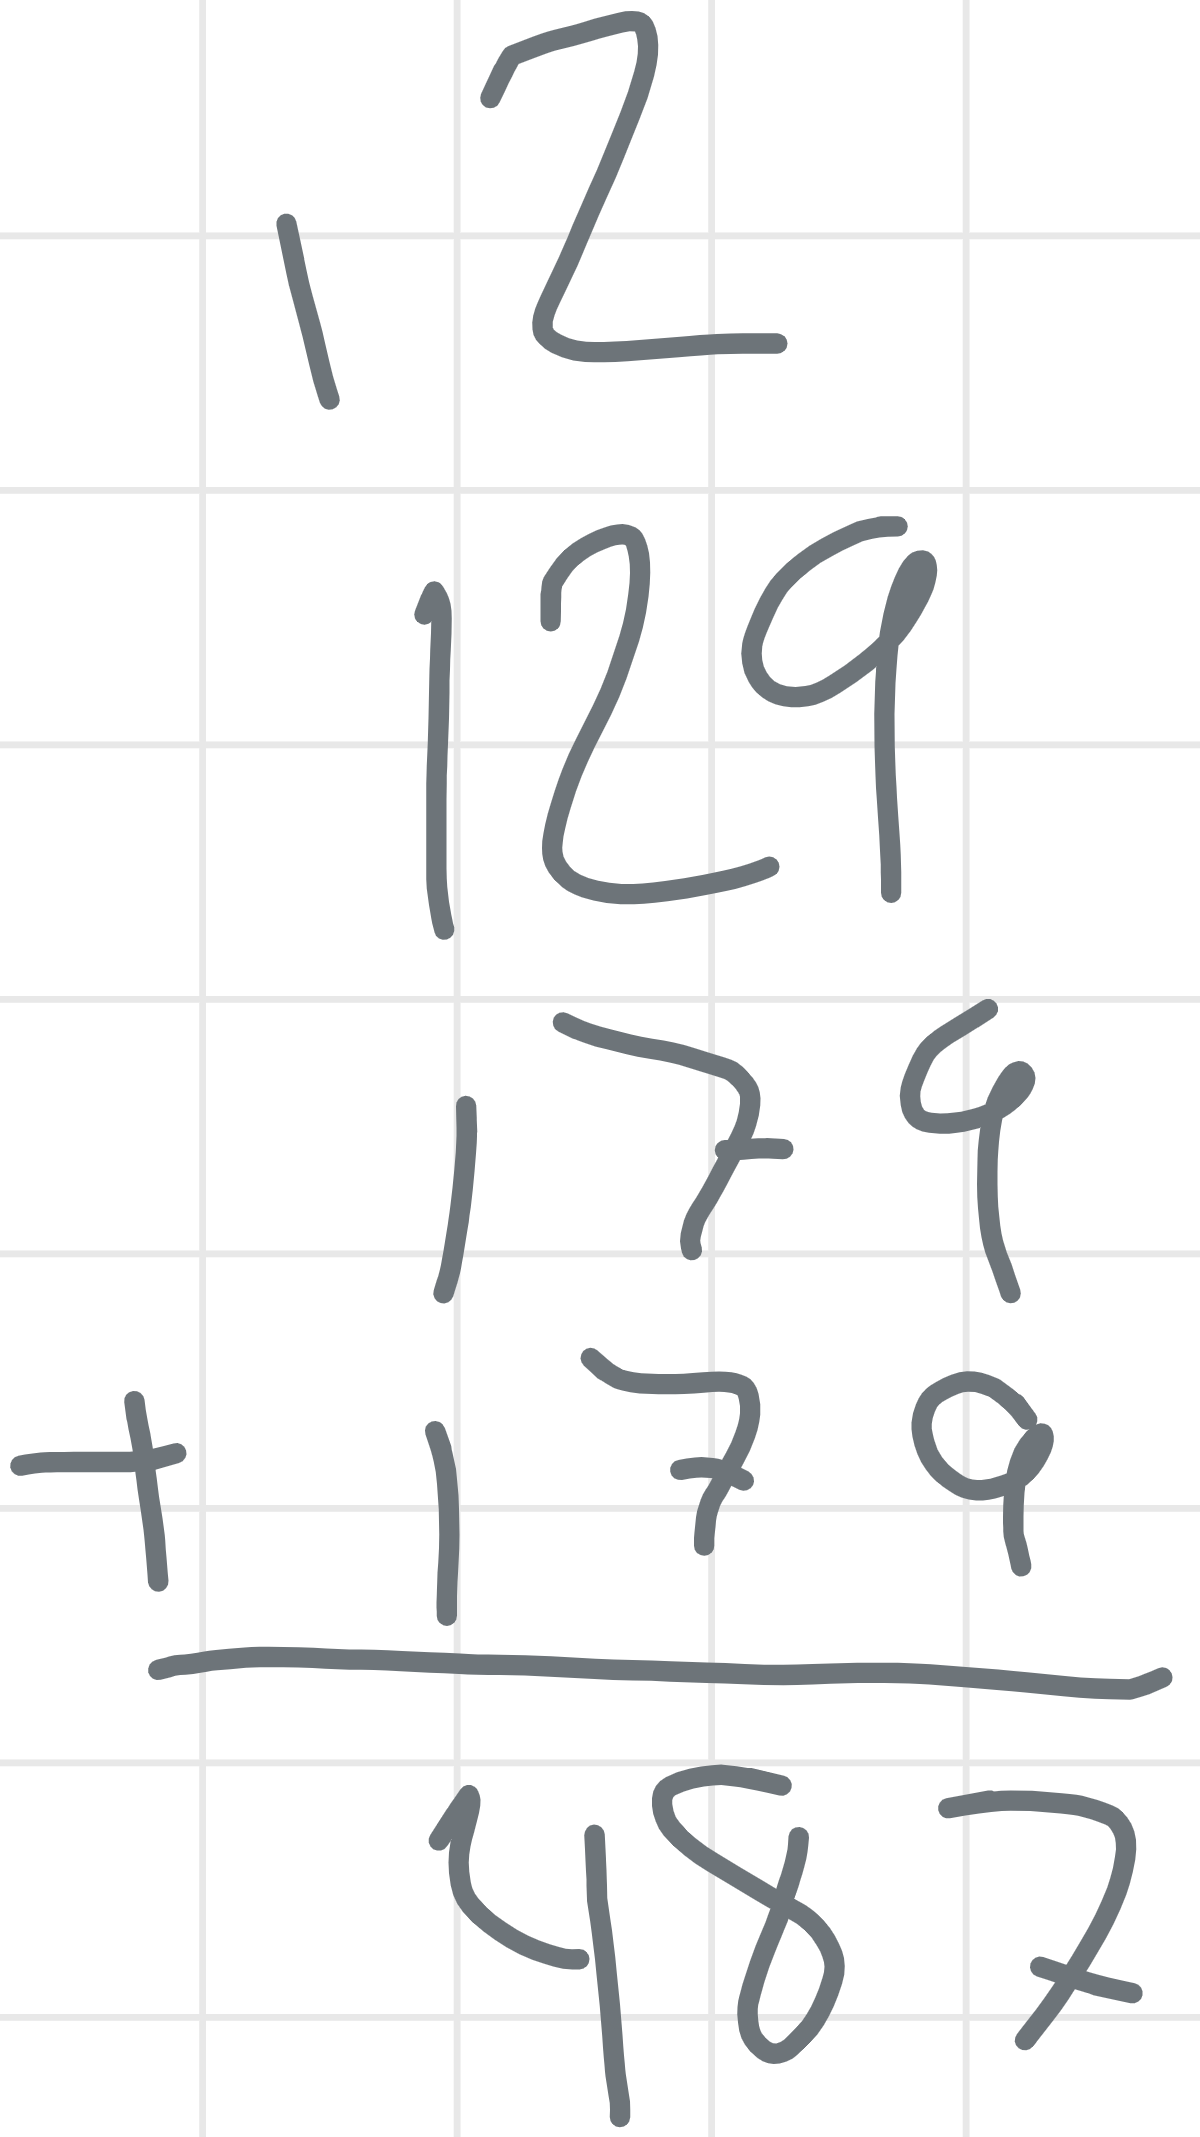 1 2
129
179
+ 179
487